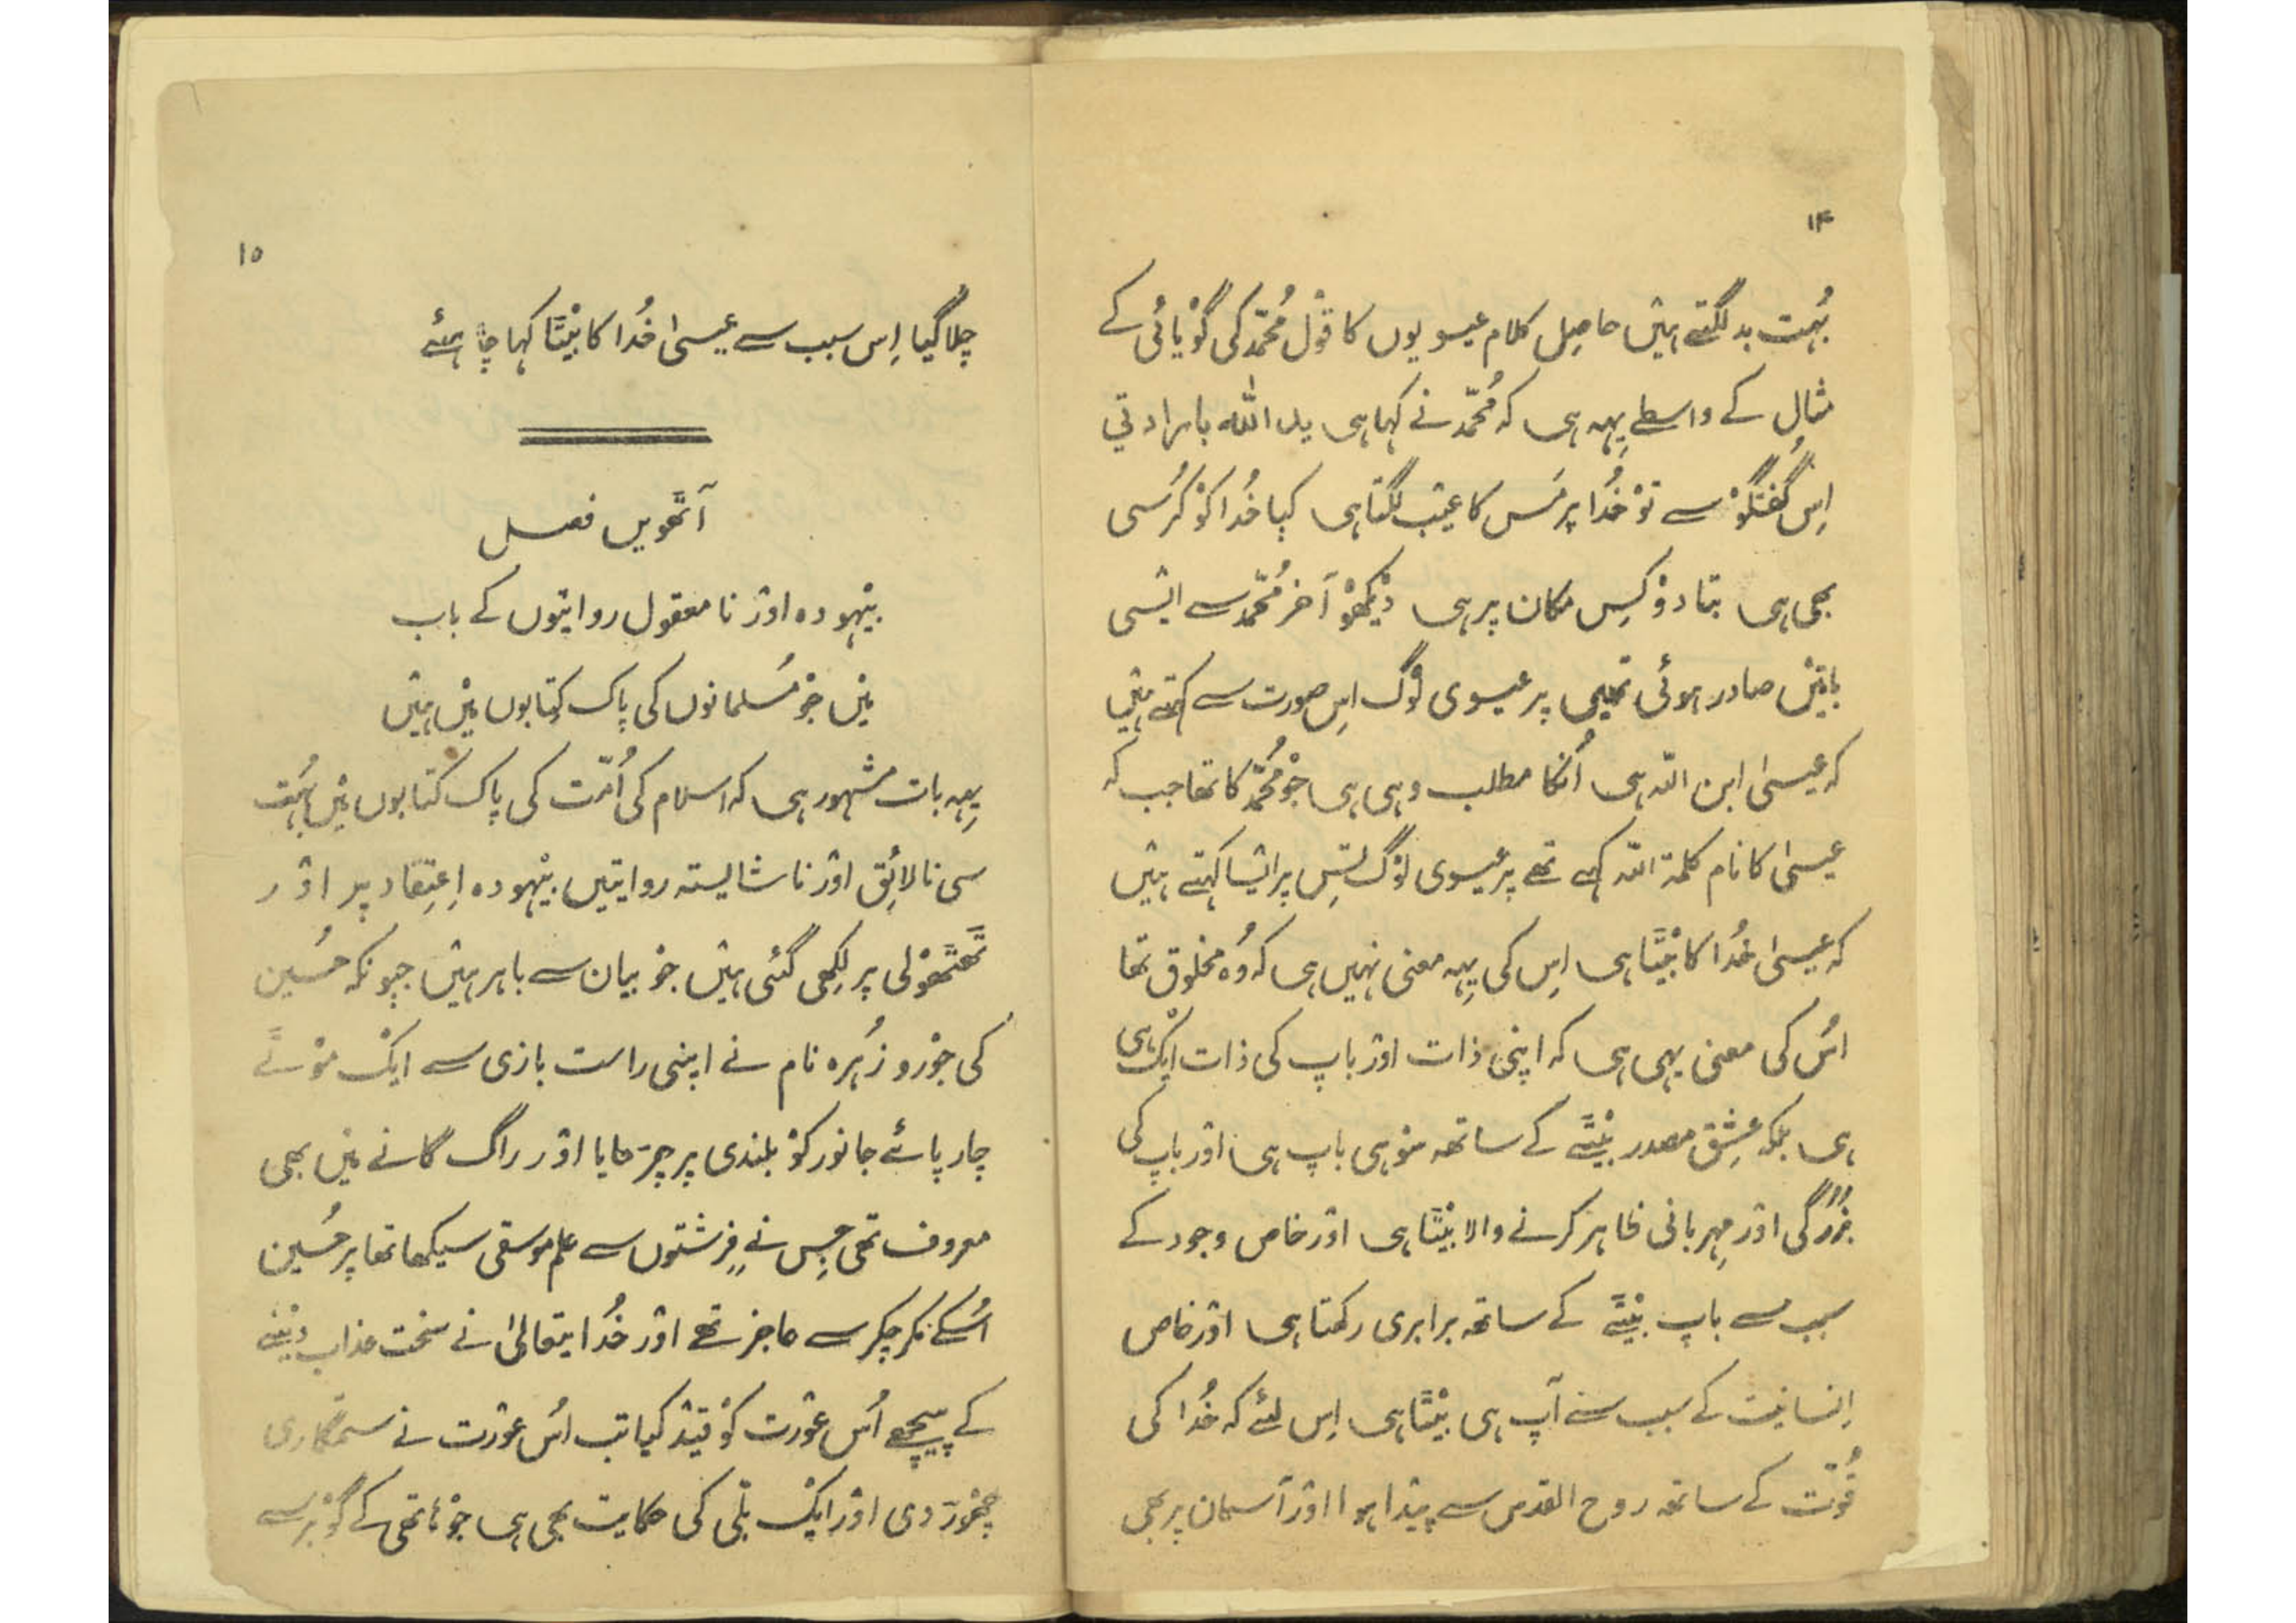 ۱۴
بُہت بد لگتے ہیں حاصِل کلام عیسویوں کا قول مُحمّد کی گویائی کے
مثال کے واسطے یِہہ ہی کہ مُحمّد نے کہا ہی ید الله
اِس گُفتگو سے تو خُدا پر مَس کا عیب لگتا ہی کیا خُدا کو کُرسی
بھی ہی بتا دو کِس مکان پر ہی دیکھو آخر مُحمّد سے ایسی
باتیں صادر ہوئی تھیں پر عیسوی لوگ اِس صورت سے کہتے ہیں
کہ عیسیٰ ابن اللہ ہی اُنکا مطلب وہی ہی جو مُحمّد کا تھا جب کہ
عیسیٰ کا نام کلمۃ اللہ کہے تھے پر عیسوی لوگ تِس پر ایسا کہتے ہیں
کہ عیسیٰ خُدا کا بیٹا ہی اِس کی یِہہ معنی نہیں ہی کہ وُہ مخلوق تھا
اُس کی معنی یہی ہی کہ اپنی ذات اور باپ کی ذات ایک ہی
ہی بلکہ عِشق مصدر بیٹے کے ساتھہ سو ہی باپ ہی اور باپ کی
بُزُرگی اور مِہربانی ظاہر کرنے والا بیٹا ہی اور خاص وجود کے
سبب سے باپ بیٹے کے ساتھہ برابری رکھتا ہی اور خاص
اِنسانیت کے سبب سے آپ ہی بیٹا ہی اِس لئے کہ خُدا کی
قُوّت کے ساتھہ روح القدس سے پیدا ہوا اور آسمان پر بھی
۱۵
چلا گیا اِس سبب سے عیسیٰ خُدا کا بیٹا کہا چاہئے
آٹھویں فصل
بیہودہ اور نامعقول روایتوں کے باب
میں جو مُسلمانوں کی پاک کِتابوں میں ہیں
یِہہ بات مشہور ہی کہ اسلام کی اُمّت کی پاک کتابوں میں بُہت
سی نالائِق اور ناشایستہ روایتیں بیہودہ اِعتِقاد پر اور
ٹھٹھولی پر لِکھی گئی ہیں جو بیان سے باہر ہیں چونکہ حُسین
کی جورو زُہرہ نام نے اپنی راست بازی سے ایک موٹے
چار پائے جانور کو بلندی پر چڑھایا اور راگ گانے میں بھی
معروف تھی جِس نے فِرِشتوں سے علم موسقی سیکھا تھا پر حُسین
اُسکے مکر چکر سے عاجز تھے اور خُدایتعالیٰ نے سخت عذاب دینے
کے پیچھے اُس عورت کو قید کیا تب اُس عورت نے ستمگاری
چھوڑ دی اور ایک بلّی کی حکایت بھی ہی جو ہاتھی کے گوبر سے